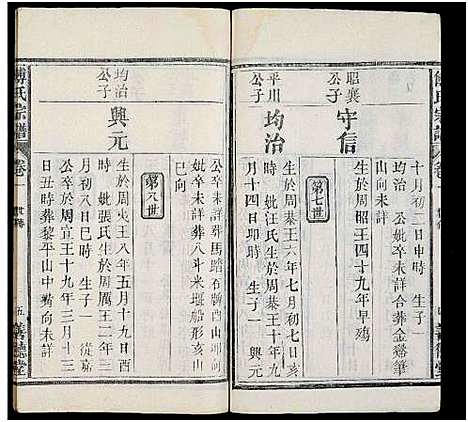 十月初二日申時 生子
均治 公妣卒未詳合葬金谿筆
山向未詳
昭襄公子
守信
生於周昭王四十九年早殤
第七世
平川公子
均治
生於周恭王六年七月初七日
吉時 妣汪氏生於周恭王十年
月十四日卯時 生子一 興元
公卒未詳葬馬踏石嶺西山坤向
妣卒未詳葬八斗米堰船形亥山
巳向
第八世
均治公子
興元
生於周夷王八年五月十九日酉
時 妣張氏生於周厲王二年三
月初八日巳時 生子一 從嘉
公卒於周宣王十九年三月十
日丑時葬黎平山中嶺向未詳
傅氏宗譜
卷一
世傳
五
善德堂